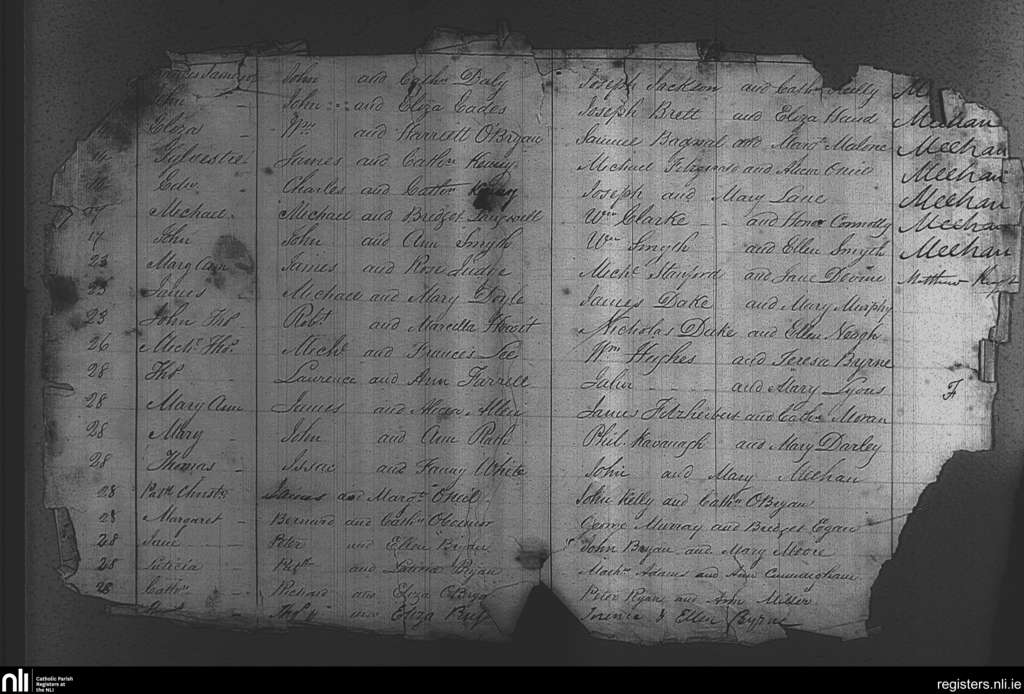 John and Cathn Daly Joseph Jackson and Cathn Reilly M
John John and Eliza Eades Joseph Brett and Eliza Hand Meehan
Eliza Wm and Harriett OBryan Samuel Bagwal and Margt Malone Meehan
14 Sylvester James and Cathn Kenny Michael Fitzgerald and Alicia Oniel Meehan
Edw. Charles and Cathn Joseph and Mary Lane Meehan
17 Michael Michael and Bredget Wm Clarke and Honor Connolly Meehan
17 John John and Ann Smyth Wm Smyth and Ellen Smyth Meehan
23 Marg Ann James and Rose Judge Michl Stanford and Jane Devine Matthew
23 James Michael and Mary Doyle James Dake and Mary Murphy
23 John Thos Robt and Marcella Howit Nicholas Duke and Ellen Keogh
26 Michl Thos Michl and Frances Lee Wm Hughes and Teresa Byrne
28 Thos Laurence and Ann Farrell and Mary Lyons F
28 Mary Ann James and Alicia Allen James Fitzherbert and Cathn Moran
28 Mary John and Ann Rath Phil. Kavanagh and Mary Darley
28 Thomas Issac and Fanny White John and Mary Meehan
28 Christr James and Margt Oniel John Kelly and Cathn OBryan
28 Margaret Bernard and Cathn Oconnor George Murray and Bredget Egan
28 Jane Peter and Ellen Bryan John Bryan and Mary Moore
28 Leticia and Ryan Adams and Ann Cunnaghan
28 Cathn Richard and Eliza OBrya Peter Ryan and Ann Miller
Thos and Eliza & Ellen Byrne
nli Catholic Parish Registers at the NLI registers.nli.ie